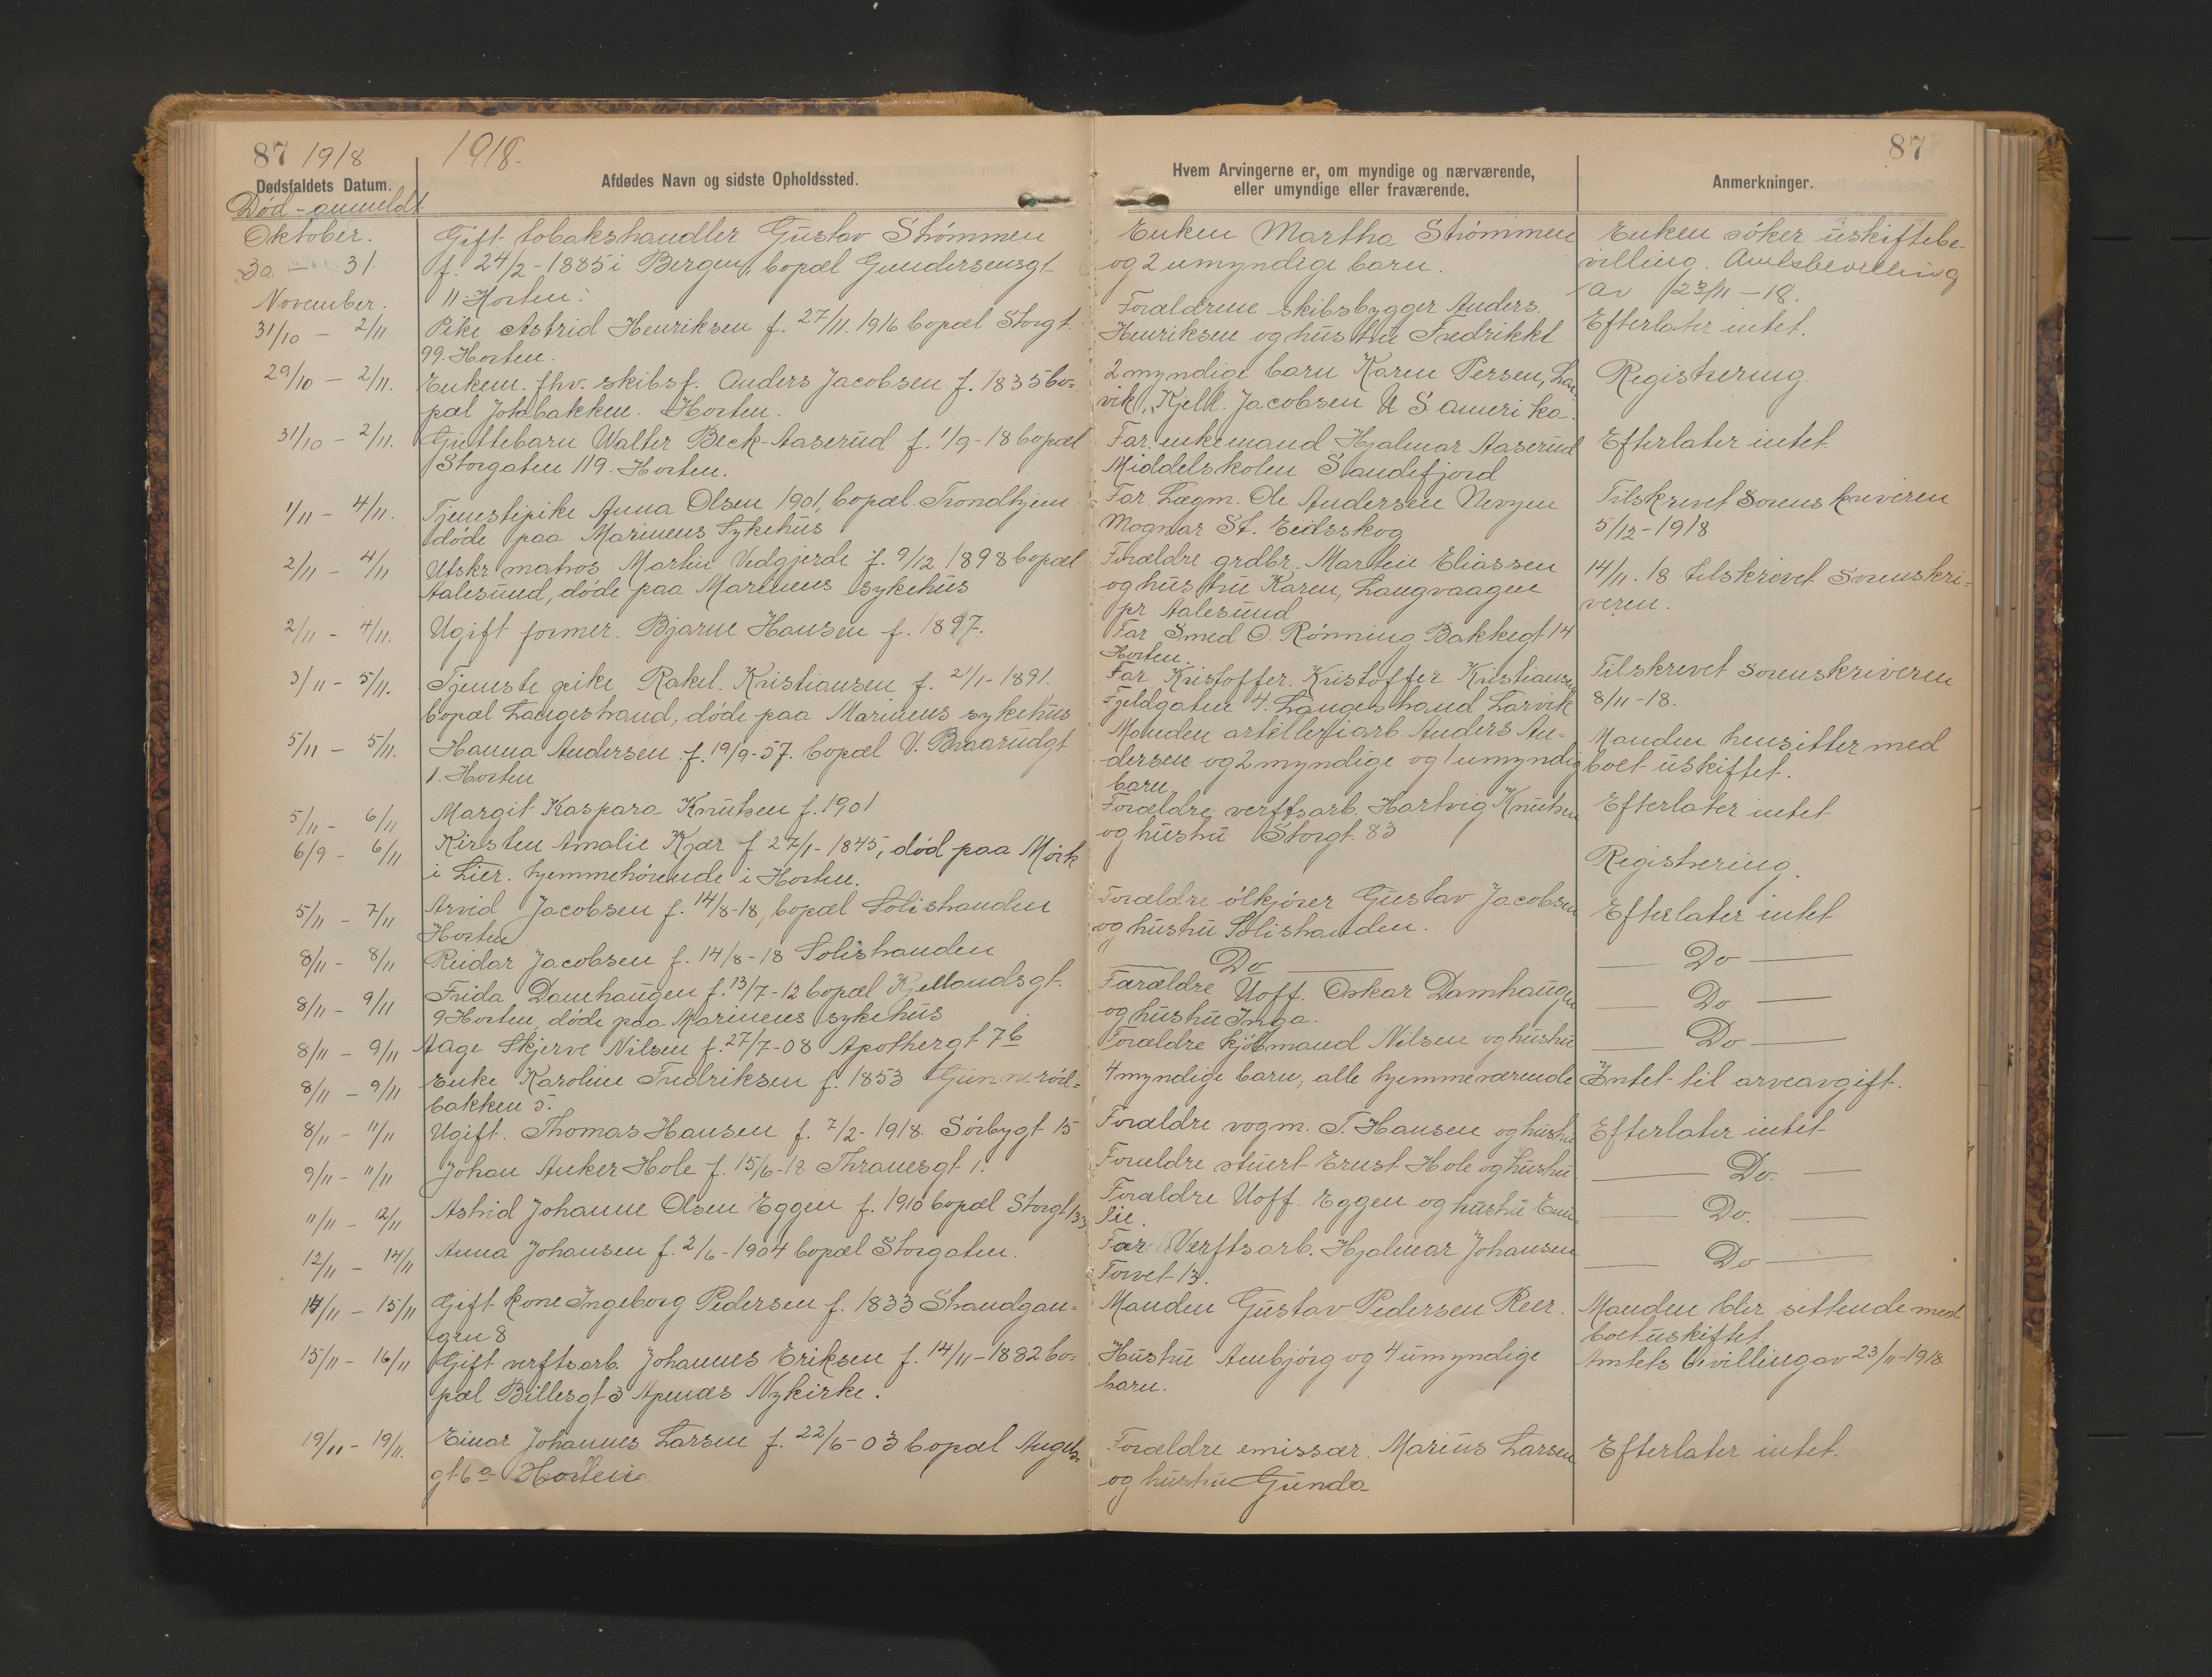 87 1918
1918.
87
Dødsfaldets Datum.
Afdødes Navn og sidste Opholdssted.
Hvem Arvingerne er, om myndige og nærværende,
eller umyndige eller fraværende.
Anmerkninger.
Død - anmeldt
Oktober.
30 - 31
Gift tobakshandler Gustav Strømmen
f. 24/2 - 1885 i Bergen, bopæl Gundersensgt
11 Horten.
Enken Martha Strømmen
og 2 umyndige barn.
Enken söker uskiftebe-
villing. Amtsbevilling
av 23/11 - 18.
November.
31/10 - 2/11
Pike Astrid Henriksen f. 27/11. 1916 bopæl Storgt.
99. Horten.
Forældrene skibsbygger Anders
Henriksen og hustru Fredrikke
Efterlater intet.
29/10 - 2/11.
Enkem. fhv. skibsf. Anders Jacobsen f. 1835 bo-
pæl Jotabakken. Horten.
2 myndige barn Karen Persen, Lar
vik, Kjell. Jacobsen U S amerika.
Registrering.
31/10 - 2/11.
Guttebarn Walter Beck-Aaserud f. 1/9 - 18 bopæl
Storgaten 119. Horten.
Far. enkemand Hjalmar Aaserud
Middelskolen Sandefjord
Efterlater intet.
1/11 - 4/11.
Tjenestepike Anna Olsen 1901, bopæl Trondhjem
døde paa Marinens Sykehus
Far. Lægm. Ole Andersen
Magnor St. Eidsskog
Tilskrevet Sorenskriveren
5/12 - 1918
2/11 - 4/11
Utskr matros Martin Vedgjerde f. 9/12 1898 bopæl
Aalesund, døde paa Marinens sykehus
Forældre grdbr. Martin Eliassen
og hustru Karen, Langvaagen
pr Aalesund
14/11. 18 tilskrevet Sorenskri-
veren.
2/11 - 4/11.
Ugift former. Bjarne Hansen f. 1897.
Far Smed O. Rønning Bakkegt 14
Horten.
3/11 - 5/11.
Tjeneste pike Rakel. Kristiansen f. 2/1 - 1891.
bopæl Langestrand, døde paa Marinens sykehus
Far Kristoffer. Kristoffer Kristiansen
Fjeldgaten 4. Langestrand Larvik
Tilskrevet sorenskriveren
8/11 - 18.
5/11 - 5/11.
Hanna Andersen f. 19/9 - 57. bopæl V. Braarudgt
1. Horten
Manden artilleriarb. Anders An-
dersen og 2 myndige og 1 umyndig
barn
Manden hensitter med
boet uskiftet.
5/11 - 6/11
Margit Kaspara Knutsen f. 1901
Forældre verftsarb. Hartvig Knutsen
og hustru Storgt. 83
Efterlater intet
6/9 - 6/11
Kirsten Amalie Kjær f 27/1 - 1845, død paa Mörk
i Lier. hjemmehörende i Horten.
Registrering.
5/11 - 7/11
Arvid Jacobsen f. 14/8 - 18, bopæl Solistranden
Horten
Forældre ölkjörer Gustav Jacobsen
og hustru Solistranden.
Efterlater intet
8/11 - 8/11
Reidar Jacobsen f. 14/8 - 18 Solistranden
Do
Do
8/11 - 9/11
Frida Damhaugen f. 13/7 - 12 bopæl Kjellandsgt.
9 Horten, døde paa Marinens sykehus
Forældre Uoff. Oskar Damhaugen
og hustru Inga.
Do
8/11 - 9/11
Aage Skjerve Nilsen f. 27/7 - 08 Apothergt 7b
Forældre kjöbmand Nilsen og hustru
Do
8/11 - 9/11
Enke Karoline Fredriksen f. 1853 Gunneröd-
bakken 5.
4 myndige barn, alle hjemmeværende
Intet til arveavgift.
8/11 - 11/11
Ugift. Thomas Hansen f. 7/2 - 1918. Sörbygt 15
Forældre vogm. T. Hansen og hustru
Efterlater intet
9/11 - 11/11
Johan Anker Hole f. 15/6 - 18 Thranesgt 1.
Forældre stuert Ernst Hole og hustru
Do.
11/11 - 12/11
Astrid Johanne Olsen Eggen f. 1910 bopæl Storgt 133
Forældre Uoff. Eggen og hustru Emi-
lie.
Do.
12/11 - 14/11
Anna Johansen f. 2/6 - 1904 bopæl Storgaten.
Far Verftsarb. Hjalmar Johansen
Torvet 13.
Do
14/11 - 15/11
Gift kone Ingeborg Pedersen f. 1833 Strandgan-
gen 8
Manden Gustav Pedersen Reer.
Manden blir sittende med
boet uskiftet.
15/11 - 16/11
Gift verftsarb. Johannes Eriksen f. 14/11 - 1882 bo-
pæl Billesgt 3 Apenæs Nykirke.
Hustru Ambjörg og 4 umyndige
barn.
Amtets bevilling av 23/11 - 1918
19/11 - 19/11.
Einar Johannes Larsen f. 22/6 - 03 bopæl Augeb.
gt 6a Horten
Forældre emissær. Marius Larsen
og hustru Gunda
Efterlater intet.